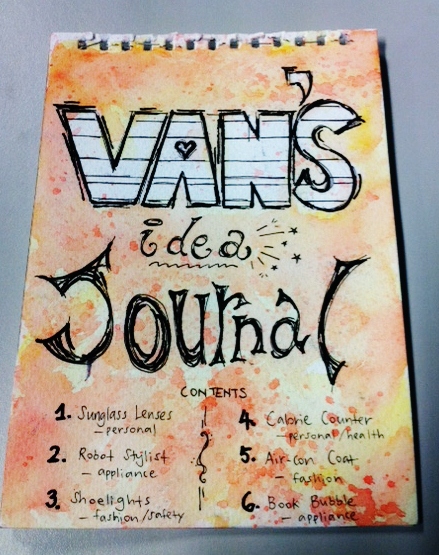 VAN'S
idea
Journal
CONTENTS
1. Sunglass Lenses
– personal
2. Robot Stylist
– appliance
3. Shoelights
– fashion/safety
4. Calorie Counter
– personal/health
5. Air-con Coat
– fashion
6. Book Bubble
– appliance